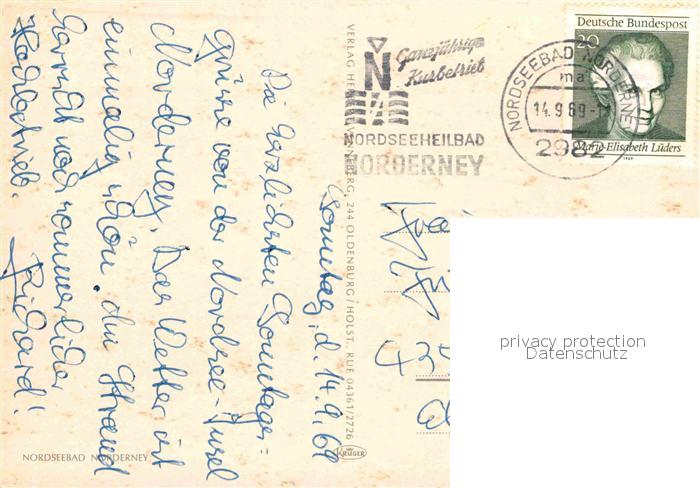 Deutsche Bundespost
20
Marie-Elisabeth Lüders
1969
NORDSEEBAD NORDERNEY
ma
14.9.69-1
2982
Ganzjährige
Kurbetrieb
N
NORDSEEHEILBAD
NORDERNEY
VERLAG
244 OLDENBURG/HOLST. RUF 04361/2726
KRÜGER
Sonntag, d. 14.9.69
Die herzlichsten Sonntags-
grüsse von der Nordsee-Insel
Norderney. Das Wetter ist
einmalig schön. Am Strand
herrscht noch sommerlicher
Hochbetrieb.
Richard!
NORDSEEBAD NORDERNEY
privacy protection
Datenschutz